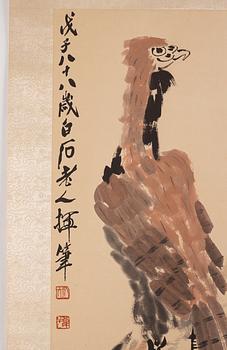 戊子八十八歲白石老人揮筆